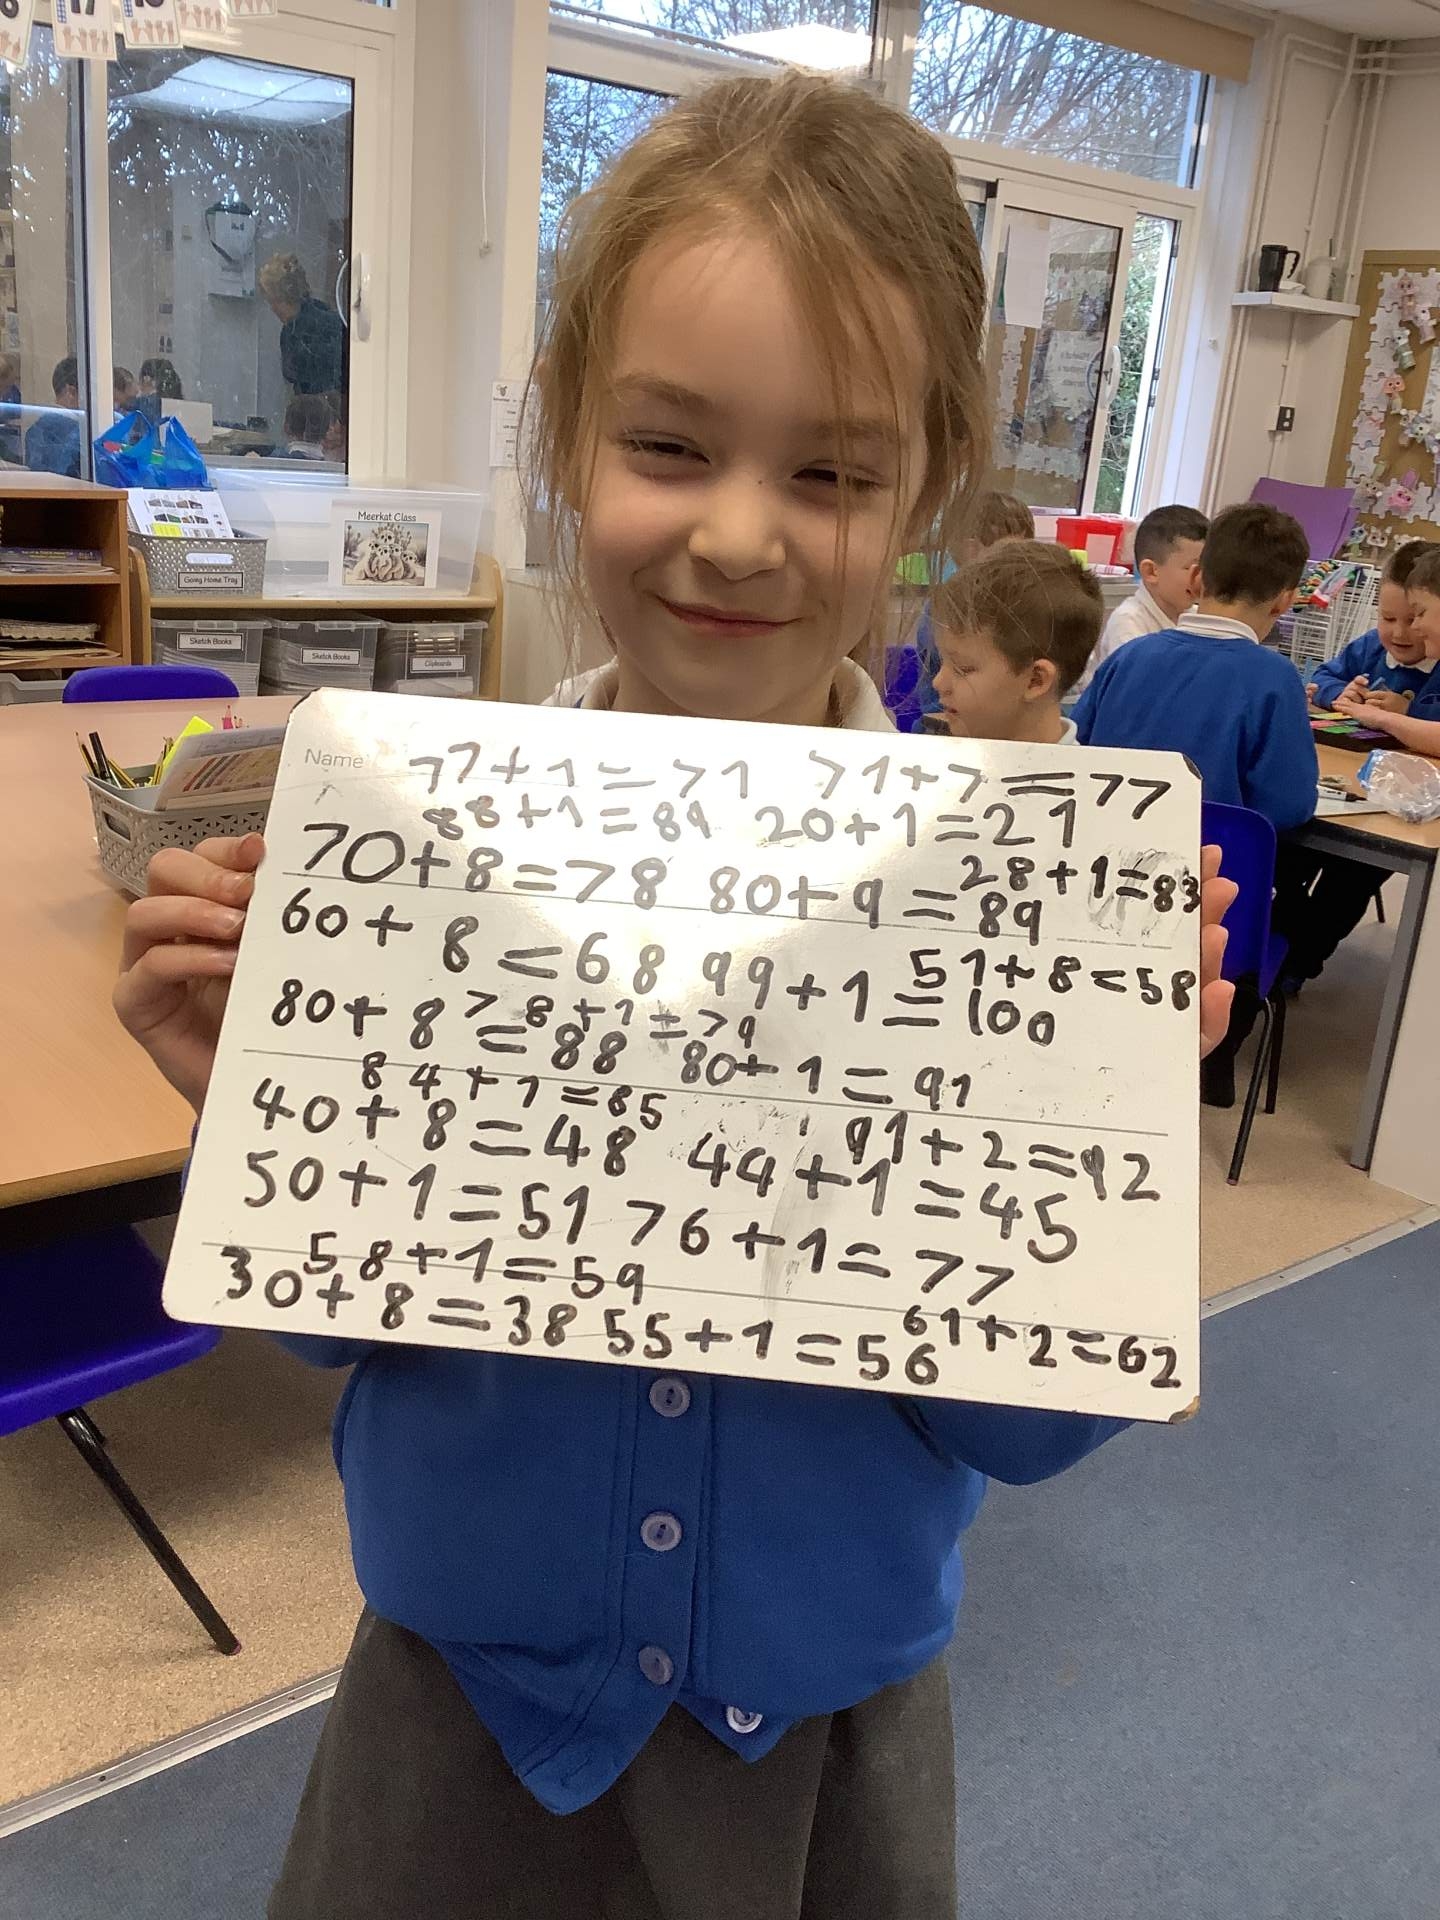 17
Meerkat Class
Going Home Tray
Sketch Books
Sketch Books
Clipboards
Name
77+1=71 71+7=77
88+1=89 20+1=21
70+8=78 80+9=89 28+1=83
60+8=68 99+1=100 51+8=58
78+1=79
80+8=88 80+1=91
84+1=85
40+8=48 44+1=45 91+2=92
50+1=51 76+1=77
58+1=59
30+8=38 55+1=56 61+2=62